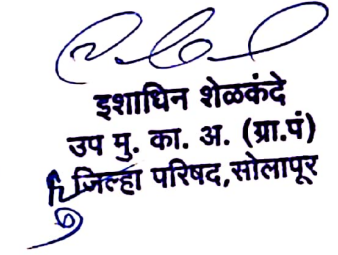 इशाधिन शेळकंदे
उप मु. का. अ. (ग्रा.पं)
जिल्हा परिषद,सोलापूर